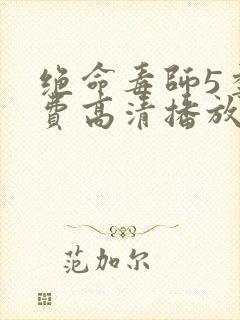 绝命毒師5
費高清播放
范加尔